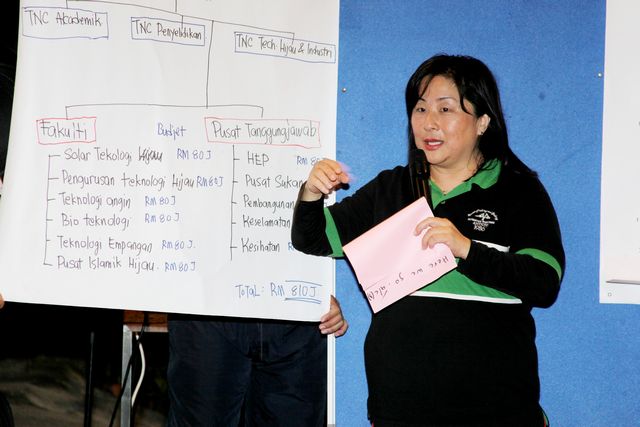 TNC Akademik
TNC Penyelidikan
TNC Tech. Hijau & Industri
Fakulti
Budjet
Pusat Tanggungjawab
Solar Tekologi Hijau RM 80 J
Pengurusan teknologi Hijau RM 80 J
Teknologi angin RM 80 J
Bio teknologi RM 80 J
Teknologi Empangan RM 80 J.
Pusat Islamik Hijau. RM 80 J
HEP RM 80
Pusat Sukan
Pembangunan
Keselamatan
Kesihatan RM
TOTAL: RM 810 J
Here we go